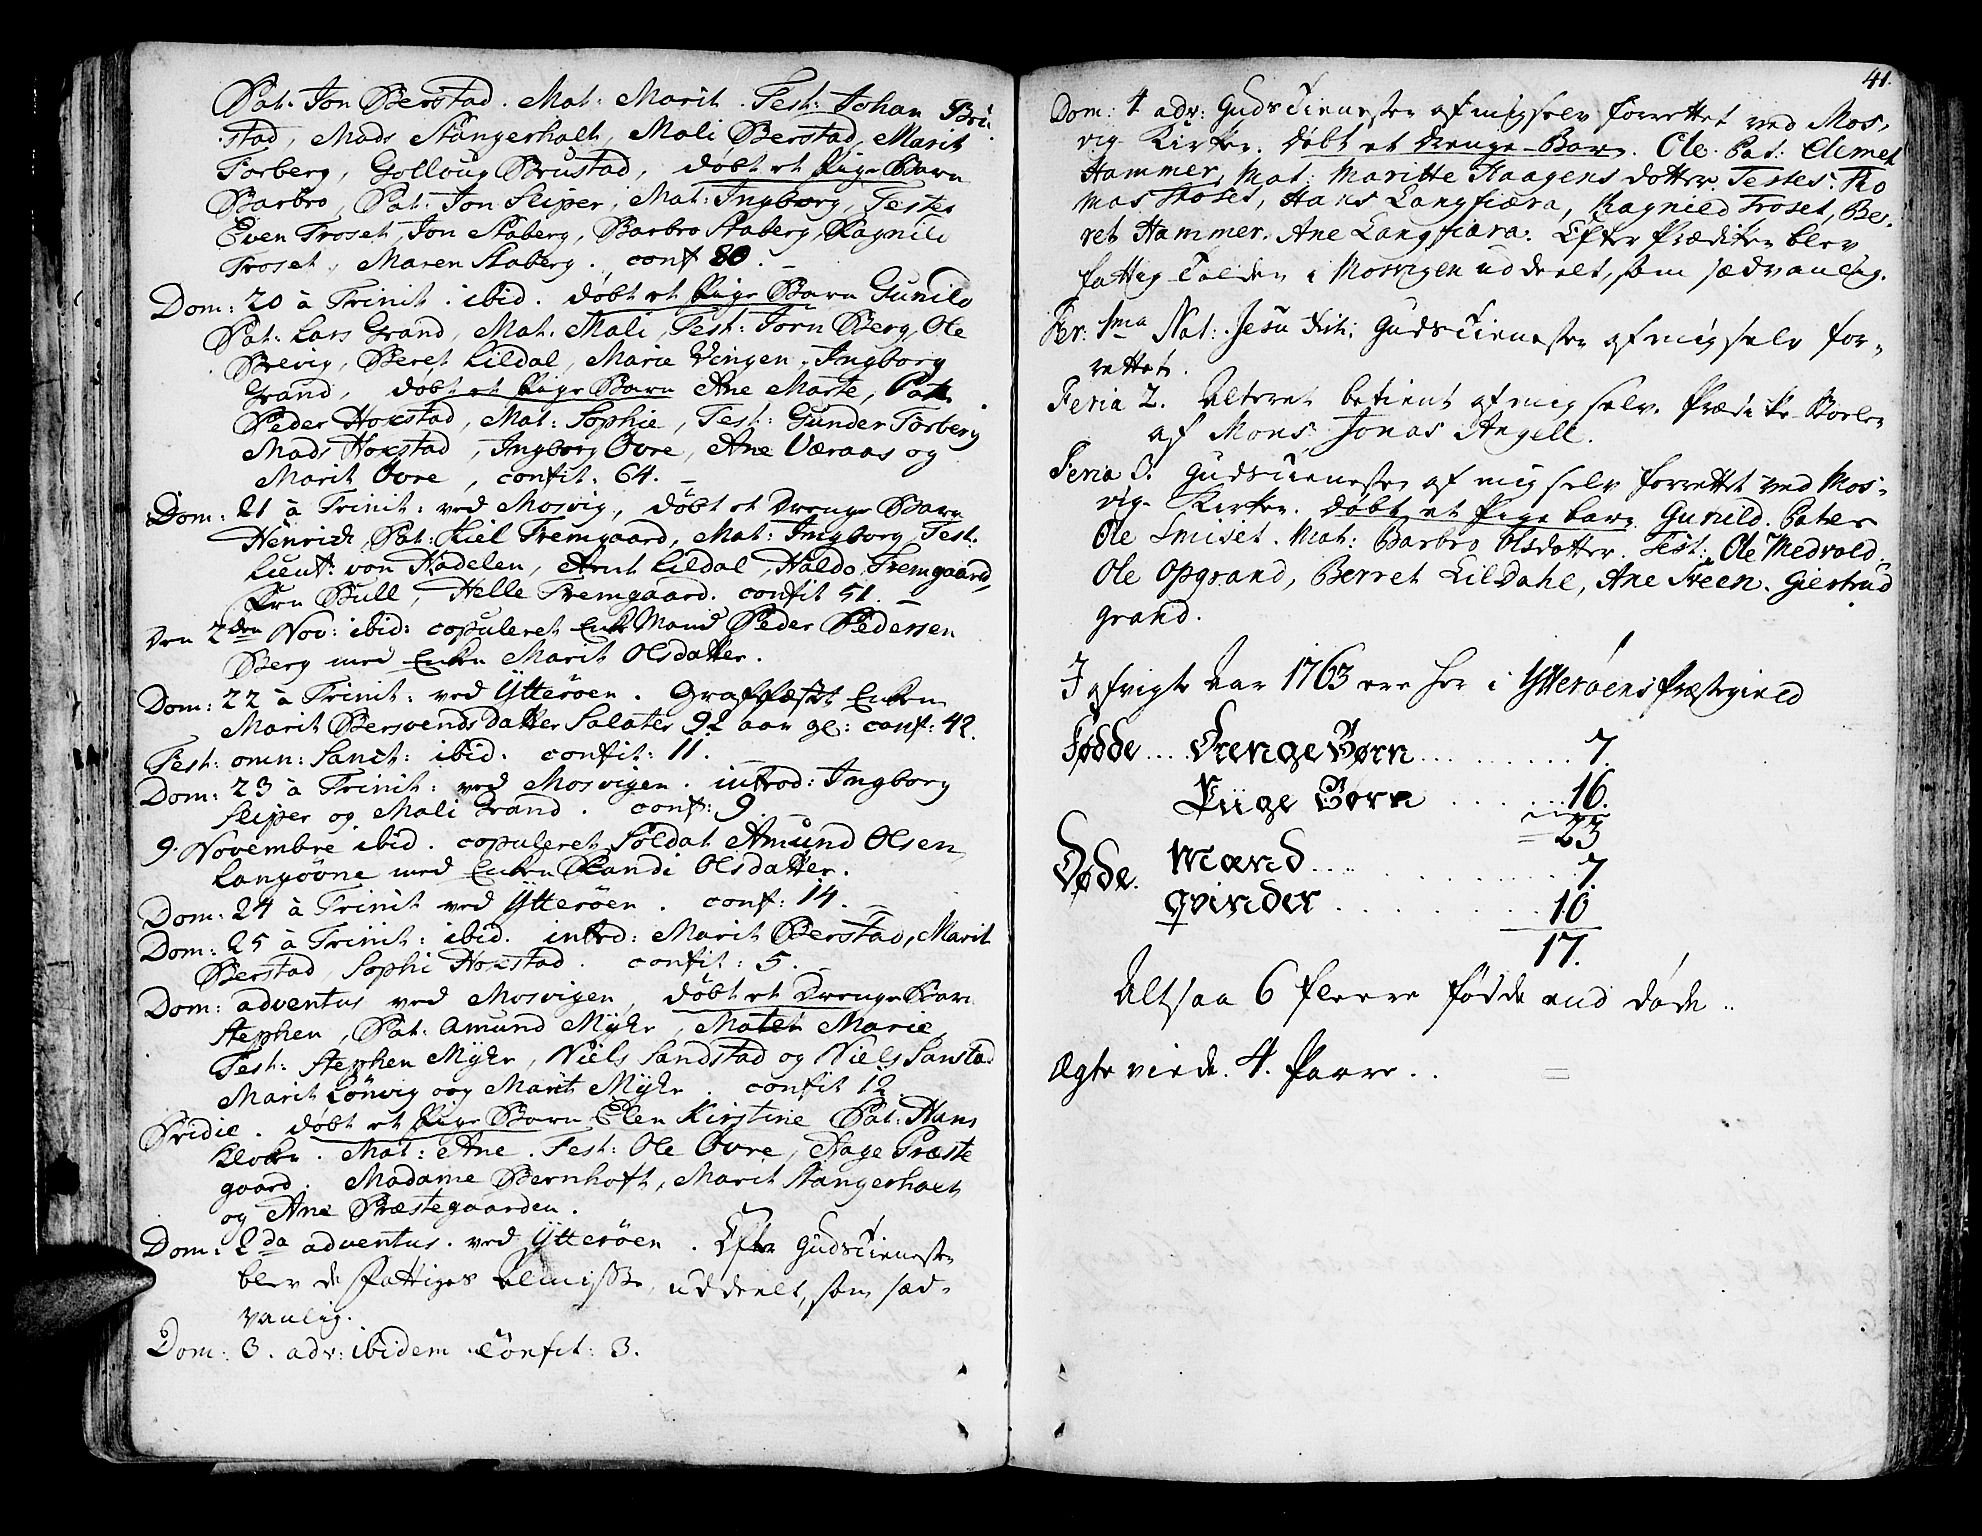 Pat: Jon Berstad. Mat: Marit. Test: Johan Bru
stad, Mads Stangerholt, Mali Berstad, Marit
Forberg, Golloug Brustad, døbt et Pige Barn
Barbro, Pat: Jon Seiper, Mat: Ingborg, Testes
Even Troset, Jon Staberg, Barbro Staberg, Ragnild
Troset, Maren Staberg. conf 80.
Dom: 20 à Trinit. ibid. døbt et Pige Barn Gunild
Pat: Lars Grand, Mat. Mali, Test: Jørn Berg, Ole
Brevig, Beret Lildal, Marie Vingen. Ingborg
Grand, døbt et Pige Barn Ane Marte, Pat.
Peder Hokstad, Mat: Sophie, Test: Gunder Forberg
Mads Hokstad, Ingborg Øvre, Ane Væraas og
Marit Øvre, confit: 64.
Dom: 21 à Trinit: ved Mosvig, døbt et Drenge Barn
Henrich, Pat: Kiel Fremgaard, Mat: Ingborg, Test:
Lieut: von Hadelen, Arnt Lildal, Haldo Fremgaard
Frn Bull, Helle Fremgaard. confit 51.
Den 2den Nov: ibid: copuleret Enke Mand Peder Pedersen
Berg med Enken Marit Olsdatter.
Dom: 22 à Trinit: ved Ytterøen. Graffæstet Enken
Marit Bersvends Datter Salater 92 aar gl: conf: 42.
Fest: omn: Sanct: ibid. confit: 11.
Dom: 23 à Trinit: ved Mosvigen. introd: Ingborg
Seiper og Mali Grand. conf: 9
9. Novembre ibid. copuleret Soldat Amund Olsen
Langøöne med Enken Randi Olsdatter.
Dom: 24 à Trinit ved Ytterøen. conf: 14.
Dom: 25 à Trinit: ibid. introd: Marit Berstad, Marit
Berstad, Sophi Hokstad. confit: 5.
Dom: adventus ved Mosvigen, døbt et Drenge Barn
Stephen, Pat: Amund Myhr, Mater Marie,
Test: Stephen Myhr, Niels Sandstad og Niels Sanstad
Marit Lönvig og Marit Myhr. confit 12.
Pridie. døbt et Pige Barn Elen Kirstine Pat: Hans
Klokr. Mat: Ane. Test: Ole Øvre, Hage Præste
gaard. Madame Bernhoft, Marit Stangerholt
og Ane Præstegaarden.
Dom: 2da adventus. ved Ytterøen. Efter Gudstienesten
blev de Fattiges Almisse, uddeelt, som sæd-
vanlig.
Dom: 3. adv: ibidem Confit: 3.
41.
Dom: 4 adv: Gudstienesten af mig selv forrettet ved Mos-
vig Kirke. døbt et Drenge-Barn. Ole. Pat: Clemet
Hammer, Mat: Maritte Haagens dotter. Testes: Tho
mas Moset, Hans Langfiæra, Ragnild Troset, Be-
ret Hammer, Ane Langfiæra. Efter Prædiken blev
fattig Tolden i Mosvigen uddeelt, som sædvanlig.
Fer: 1ma Nat: Jesu Xsti: Gudstienesten af mig selv for-
rettet.
Feria 2. Alteret betient af mig selv. Prædike-Stolen
af Mons: Jonas Angell.
Feria 3. Gudstienesten af mig selv forrettet ved Mos-
vig Kirke. døbt et Pige barn Gunild. Pater
Ole Smiset. Mat: Barbro Olsdatter. Test: Ole Medvold,
Ole Opgrand, Berret Lildahl, Ane Sveen. Giertrud
grand.
I afvigte Aar 1763 ere her i Ytterøens Præstegield
Fødde .... Drenge Børn ......... 7.
Piige Børn ........ 16.
23
Døde. Mænd ......... 7.
qvinder ......... 10
17.
Altsaa 6 fleere fødde end døde..
Ægte viede. 4. Parre..